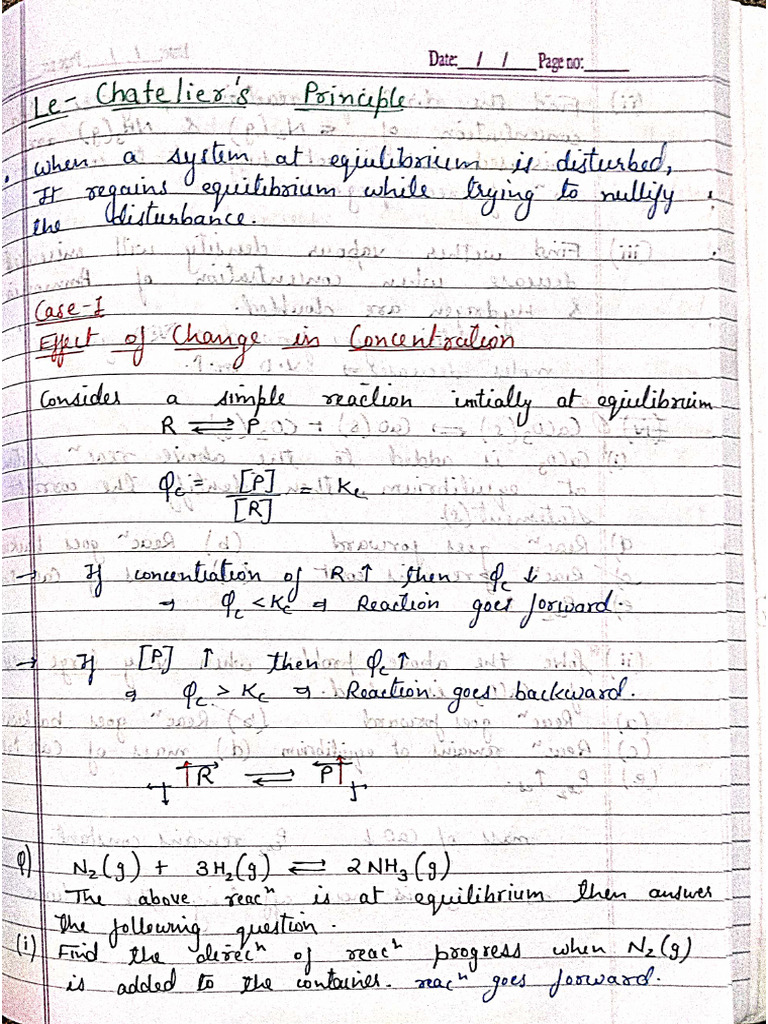 Date: / / Page no:
Le-Chatelier's Principle.
. when a system at eqiulibrium is disturbed,
It regains equilibrium while trying to nullify
the disturbance.
Case-I
Effect of Change in Concentration
Consider a simple reaction initially at eqiulibrium
R ⇌ P
Qc = [P]/[R] = Kc
→ If concentration of R↑ then Qc ↓
⇒ Qc < Kc ⇒ Reaction goes forward.
→ If [P] ↑ then Qc ↑
⇒ Qc > Kc ⇒ Reaction goes backward.
↑R ⇌ P↑
Q) N₂(g) + 3H₂(g) ⇌ 2NH₃(g)
The above reacⁿ is at equilibrium then answer
the following question.
(i) Find the direcⁿ of reacⁿ progress when N₂(g)
is added to the container. reacⁿ goes forward.